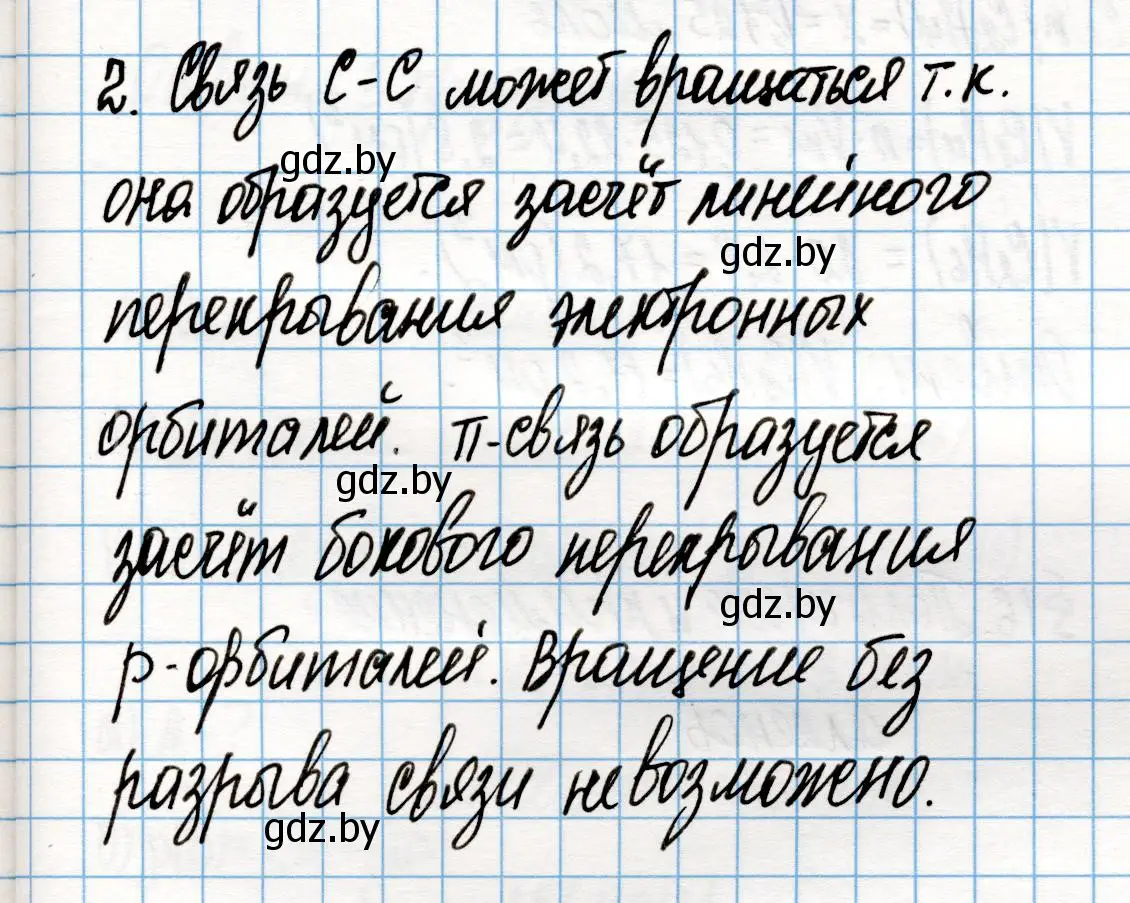 2. Связь С-С может вращаться т.к.
gdz.by
она образуется засчёт линейного
gdz.by
перекрывания электронных
орбиталей. π-связь образуется
gdz.by
засчёт бокового перекрывания
gdz.by
р-орбиталей. Вращение без
разрыва связи невозможено.
gdz.by